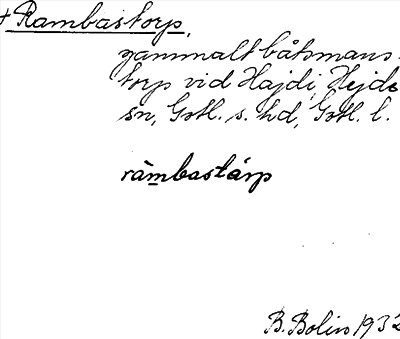 + Rambastorp,
gammalt båtsmans-
torp vid Hajdi, Hejde
sn, Gotl. s. hd, Gotl. l.
ràmbastárp
B. Bolin 1932